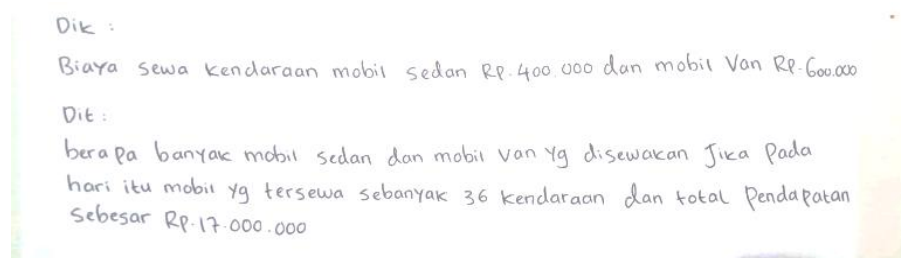 Dik :
Biaya sewa kendaraan mobil sedan Rp.400.000 dan mobil Van Rp.600.000
Dit :
berapa banyak mobil sedan dan mobil Van yg disewakan Jika Pada
hari itu mobil yg tersewa sebanyak 36 kendaraan dan total Pendapatan
Sebesar Rp.17.000.000